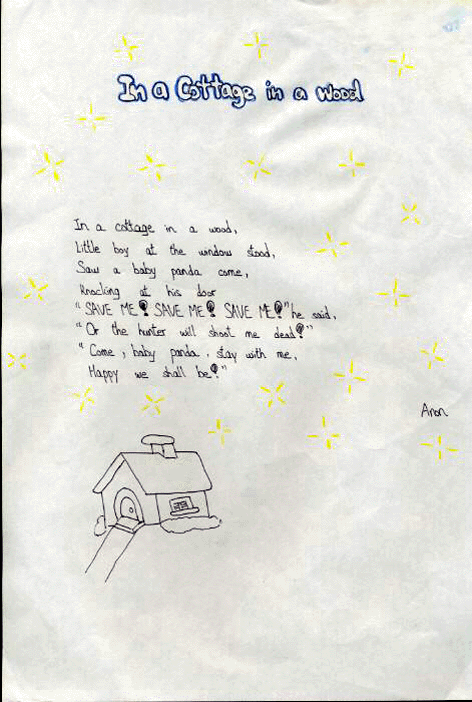 In a Cottage in a Wood
In a cottage in a wood,
Little boy at the window stood,
Saw a baby panda come,
Knocking at his door
"SAVE ME! SAVE ME! SAVE ME!" he said,
"Or the hunter will shoot me dead!"
"Come, baby panda, stay with me,
Happy we shall be!"
Aron